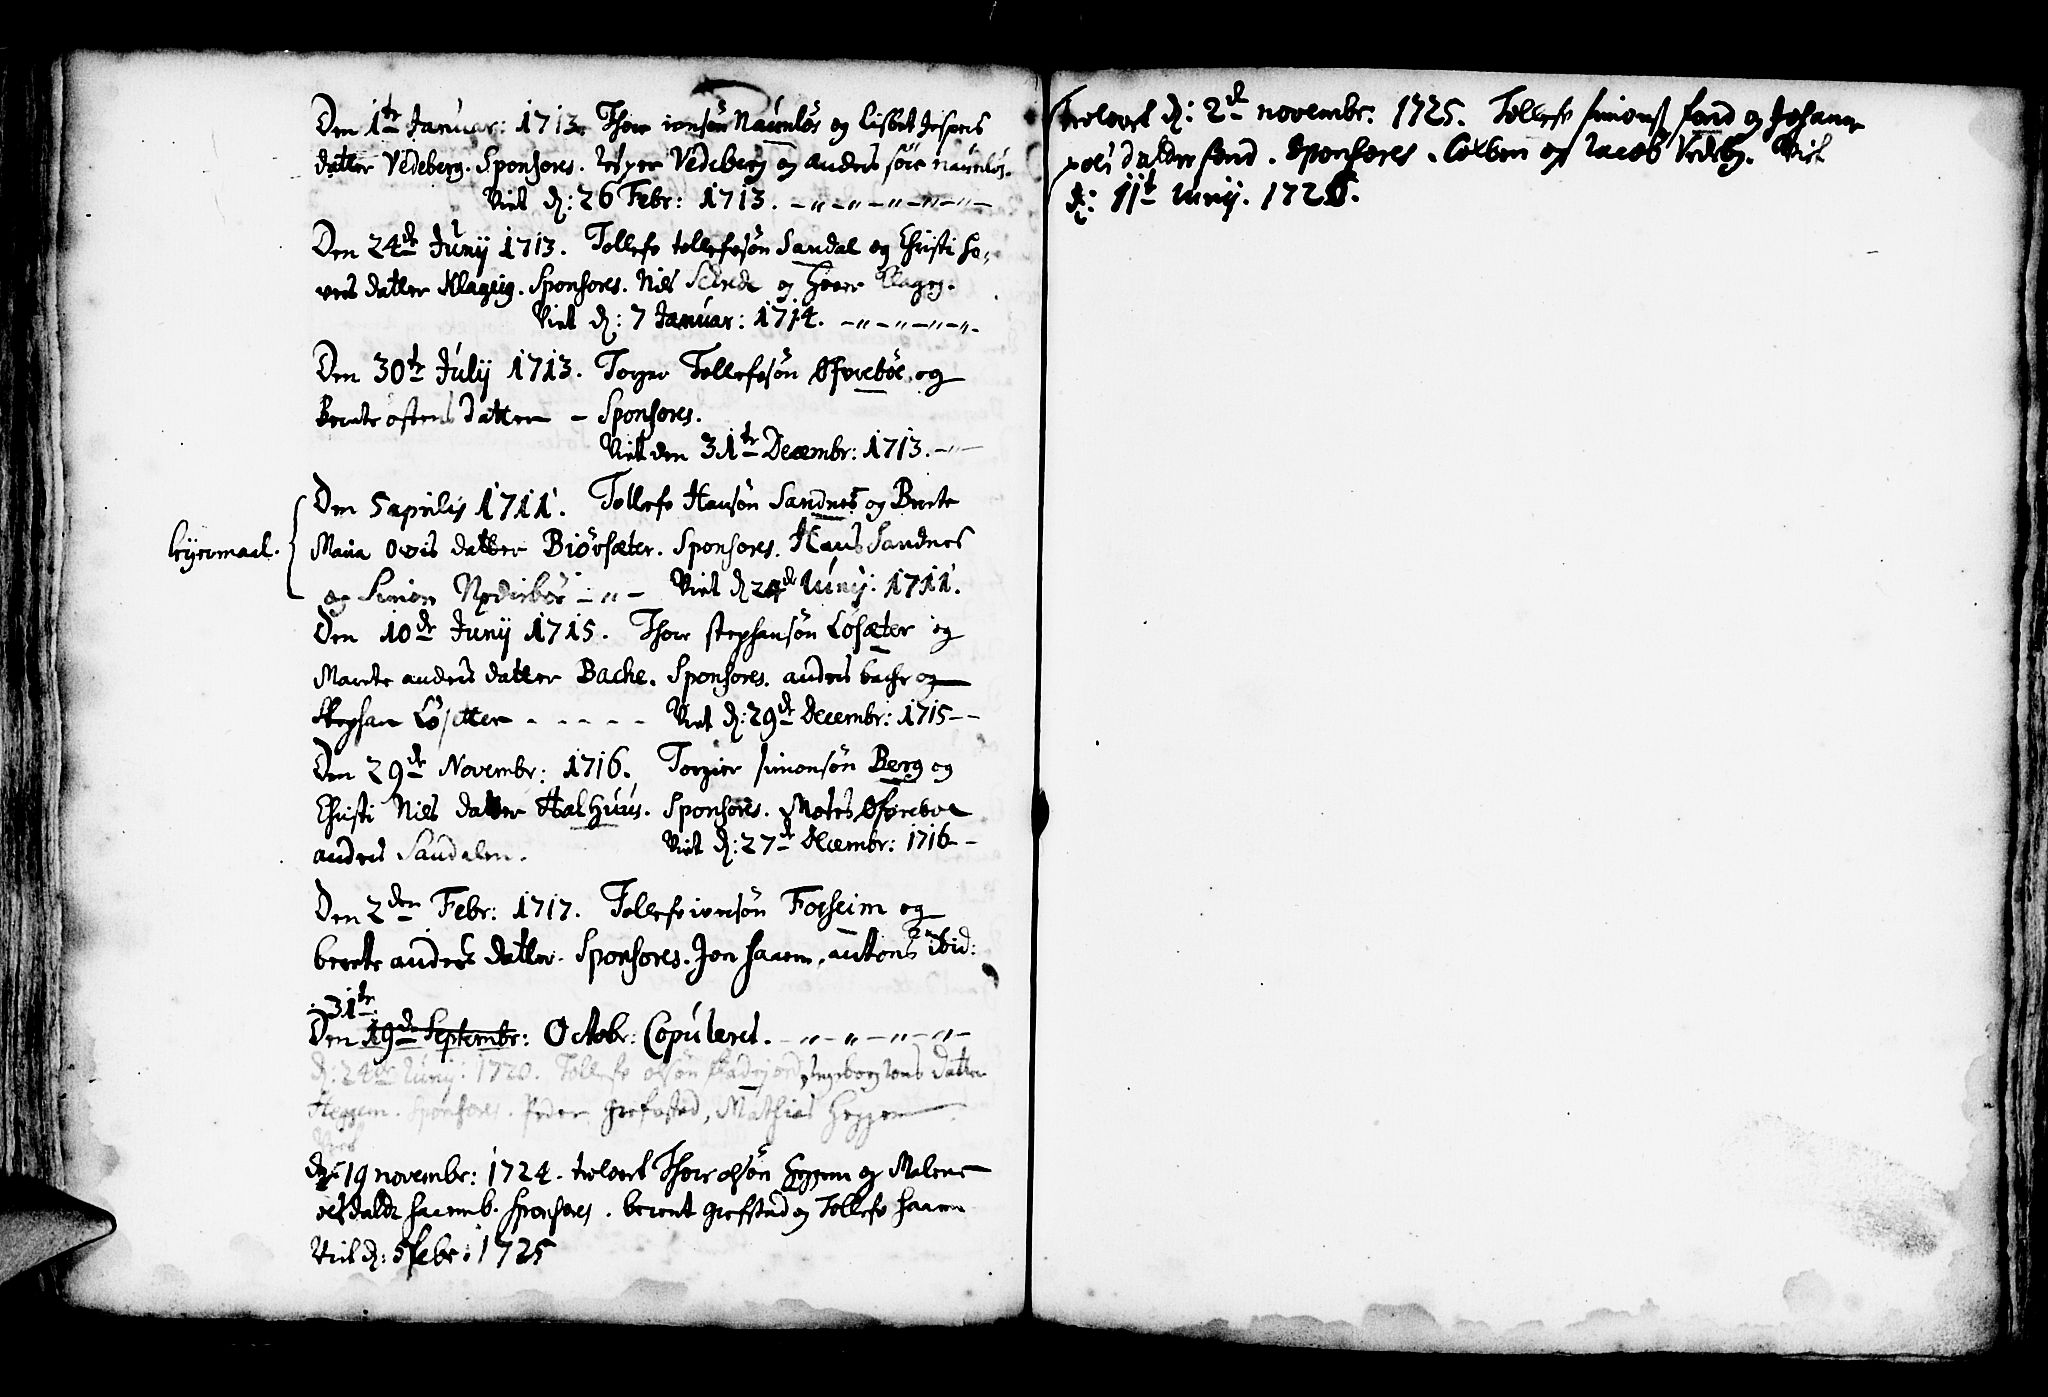 Den 1te Januar: 1713. Thor ionsön Naúmlös og Lisbet Jespers
datter Vedeberg. Sponsores. Vedeberg og anders
Viet d: 26 Febr: 1713.
Den 24de Junij 1713. Tollefs tollefsön Sandal og Christi Ha-
vers datter Klageig. Sponsores. Nils og Haver Klageg.
Viet d: 7 Januar: 1714.
Den 30te Julij 1713. Torger Tollefsön Öfreböe og
Berete östens datter - Sponsores.
Viet den 31te Decembr: 1713.
Den 5 aprilis 1711. Tollefs Hansön Sandnes og Berete
Leyermaal.
Maria datter Biörsæter. Sponsores. Hans Sandnes
og Simon Viet d 24de Junij: 1711.
Den 10de Junij 1715. Thor stephansön Lösæter og
Marete anders datter Bache. Sponsores. anders bache og
Stephan Lösetter - - - - - Viet d: 29de Decembr: 1715 - -
Den 29de Novembr: 1716. Torgier simonsön Berg og
Christi Niels datter Halhuus. Sponsores. Mates Öfreboe
anders Sandalen. Viet d: 27de Decembr: 1716 - -
Den 2den Febr: 1717. Tollefs ionsön Forseim og
berete anders datter. Sponsores. Jon haarem, ibid:
31te
Den 19de Septembr: Octobr: Copuleret.
d: 24de Junij: 1720. Tollefs olsön Ingeborg Ions datter
Heggem. Sponsores. Peder grefstad, Mathias Heggem
Viet
d: 19 novembr: 1724. trolovet Thor olsön Heggem og Malene
ols datter haaremb. Sponsores. berent grefstad og Tollefs haarem
Viet d: 5 febr: 1725
Trolovet d: 2de novembr. 1725. Tollefs simons fand og Johane
pols datter fand. Sponsores. Colben og Jacob Vedebg. Viet
d: 11te Junij. 1726.